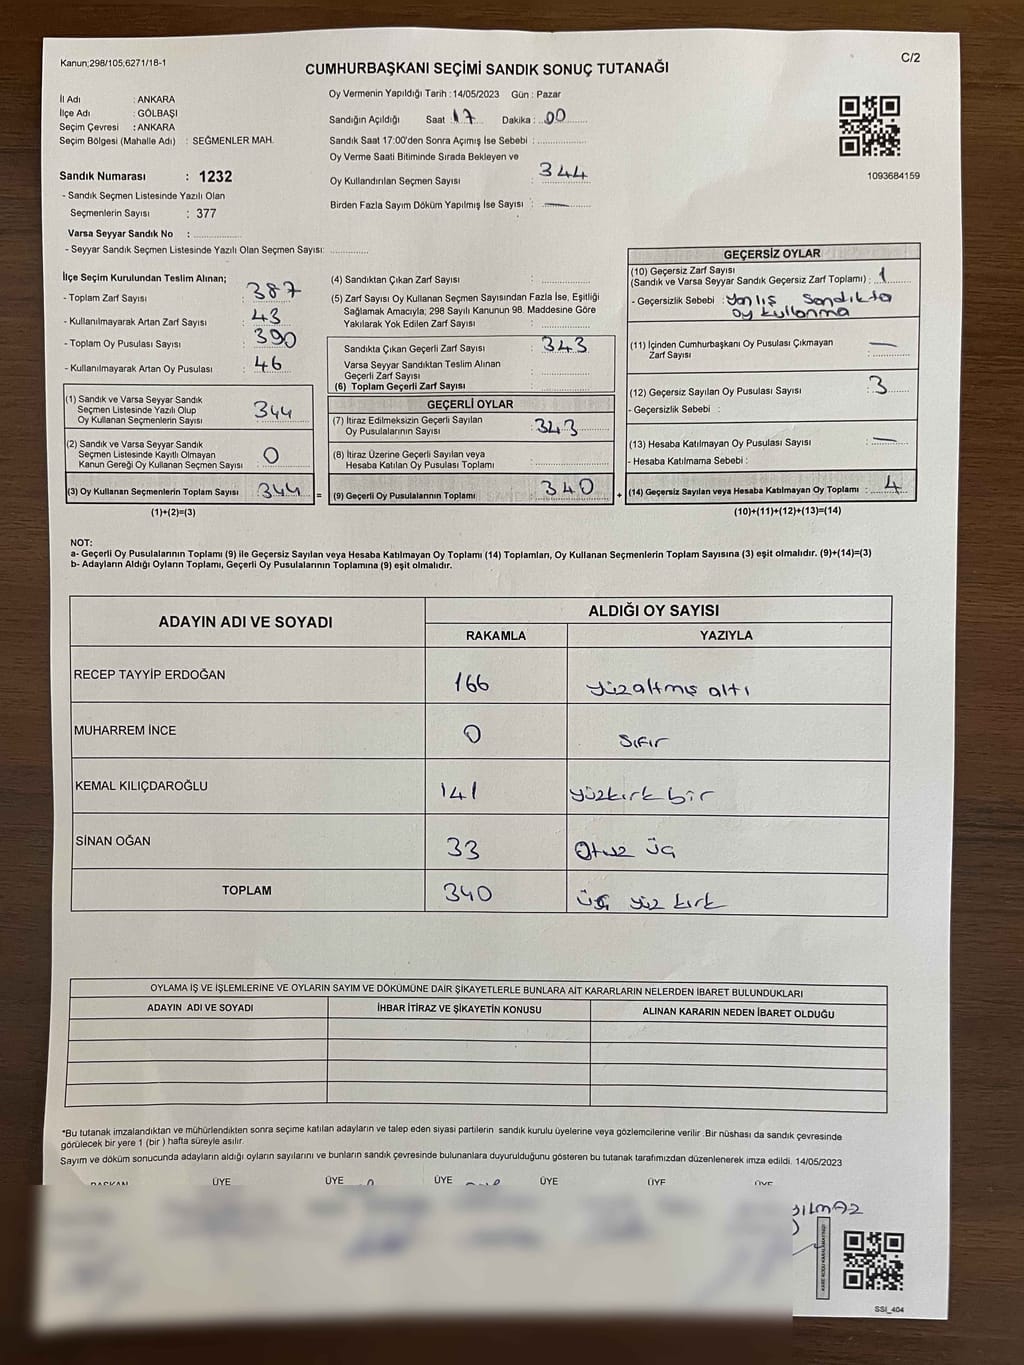 Kanun;298/105;6271/18-1
C/2
CUMHURBAŞKANI SEÇİMİ SANDIK SONUÇ TUTANAĞI
İl Adı : ANKARA
İlçe Adı : GÖLBAŞI
Seçim Çevresi : ANKARA
Seçim Bölgesi (Mahalle Adı) : SEĞMENLER MAH.
Sandık Numarası : 1232
- Sandık Seçmen Listesinde Yazılı Olan
Seçmenlerin Sayısı : 377
Varsa Seyyar Sandık No :
- Seyyar Sandık Seçmen Listesinde Yazılı Olan Seçmen Sayısı:
Oy Vermenin Yapıldığı Tarih :14/05/2023 Gün : Pazar
Sandığın Açıldığı Saat : 17 Dakika : 00
Sandık Saat 17:00'den Sonra Açımış İse Sebebi :
Oy Verme Saati Bitiminde Sırada Bekleyen ve
Oy Kullandırılan Seçmen Sayısı : 344
Birden Fazla Sayım Döküm Yapılmış İse Sayısı : —
1093684159
İlçe Seçim Kurulundan Teslim Alınan;
- Toplam Zarf Sayısı : 387
- Kullanılmayarak Artan Zarf Sayısı : 43
- Toplam Oy Pusulası Sayısı : 390
- Kullanılmayarak Artan Oy Pusulası : 46
(1) Sandık ve Varsa Seyyar Sandık
Seçmen Listesinde Yazılı Olup
Oy Kullanan Seçmenlerin Sayısı 344
(2) Sandık ve Varsa Seyyar Sandık
Seçmen Listesinde Kayıtlı Olmayan
Kanun Gereği Oy Kullanan Seçmen Sayısı 0
(3) Oy Kullanan Seçmenlerin Toplam Sayısı : 344 =
(1)+(2)=(3)
(4) Sandıktan Çıkan Zarf Sayısı :
(5) Zarf Sayısı Oy Kullanan Seçmen Sayısından Fazla İse, Eşitliği
Sağlamak Amacıyla; 298 Sayılı Kanunun 98. Maddesine Göre
Yakılarak Yok Edilen Zarf Sayısı :
Sandıkta Çıkan Geçerli Zarf Sayısı : 343
Varsa Seyyar Sandıktan Teslim Alınan
Geçerli Zarf Sayısı :
(6) Toplam Geçerli Zarf Sayısı :
GEÇERLİ OYLAR
(7) İtiraz Edilmeksizin Geçerli Sayılan
Oy Pusulalarının Sayısı : 343
(8) İtiraz Üzerine Geçerli Sayılan veya
Hesaba Katılan Oy Pusulası Toplamı :
(9) Geçerli Oy Pusulalarının Toplamı : 340 +
GEÇERSİZ OYLAR
(10) Geçersiz Zarf Sayısı
(Sandık ve Varsa Seyyar Sandık Geçersiz Zarf Toplamı) : 1
- Geçersizlik Sebebi : Yanlış Sandıkta
oy kullanma
(11) İçinden Cumhurbaşkanı Oy Pusulası Çıkmayan
Zarf Sayısı : —
(12) Geçersiz Sayılan Oy Pusulası Sayısı : 3
- Geçersizlik Sebebi :
(13) Hesaba Katılmayan Oy Pusulası Sayısı : —
- Hesaba Katılmama Sebebi :
(14) Geçersiz Sayılan veya Hesaba Katılmayan Oy Toplamı : 4
(10)+(11)+(12)+(13)=(14)
NOT:
a- Geçerli Oy Pusulalarının Toplamı (9) ile Geçersiz Sayılan veya Hesaba Katılmayan Oy Toplamı (14) Toplamları, Oy Kullanan Seçmenlerin Toplam Sayısına (3) eşit olmalıdır. (9)+(14)=(3)
b- Adayların Aldığı Oyların Toplamı, Geçerli Oy Pusulalarının Toplamına (9) eşit olmalıdır.
ADAYIN ADI VE SOYADI
ALDIĞI OY SAYISI
RAKAMLA YAZIYLA
RECEP TAYYİP ERDOĞAN 166 yüzaltmış altı
MUHARREM İNCE 0 Sıfır
KEMAL KILIÇDAROĞLU 141 yüzkırk bir
SİNAN OĞAN 33 Otuz üç
TOPLAM 340 üç yüz kırk
OYLAMA İŞ VE İŞLEMLERİNE VE OYLARIN SAYIM VE DÖKÜMÜNE DAİR ŞİKAYETLERLE BUNLARA AİT KARARLARIN NELERDEN İBARET BULUNDUKLARI
ADAYIN ADI VE SOYADI İHBAR İTİRAZ VE ŞİKAYETİN KONUSU ALINAN KARARIN NEDEN İBARET OLDUĞU
*Bu tutanak imzalandıktan ve mühürlendikten sonra seçime katılan adayların ve talep eden siyasi partilerin sandık kurulu üyelerine veya gözlemcilerine verilir .Bir nüshası da sandık çevresinde
görülecek bir yere 1 (bir ) hafta süreyle asılır.
Sayım ve döküm sonucunda adayların aldığı oyların sayılarını ve bunların sandık çevresinde bulunanlara duyurulduğunu gösteren bu tutanak tarafımızdan düzenlenerek imza edildi. 14/05/2023
BAŞKAN ÜYE ÜYE ÜYE ÜYE ÜYE ÜYE
SSI_404